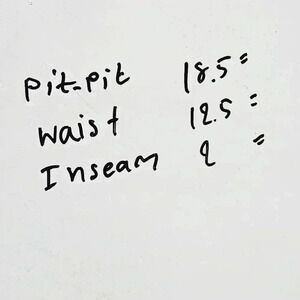 Pit-Pit 18.5"
Waist 12.5"
Inseam 2"